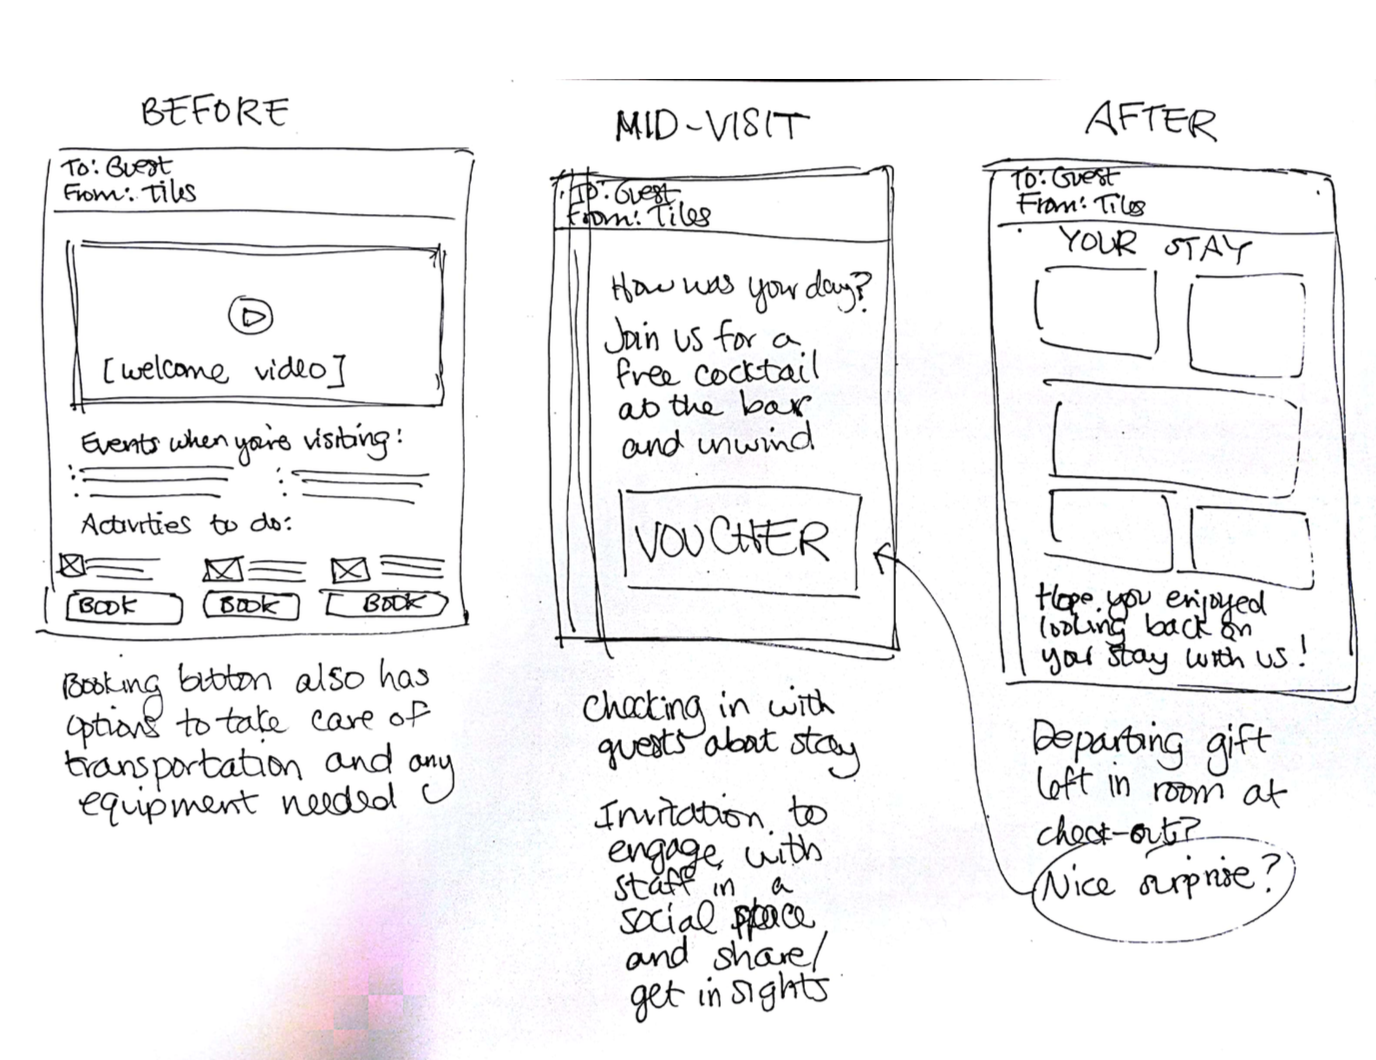 BEFORE
To: Guest
From: Tiles
[welcome video]
Events when you're visiting!
Activities to do:
BOOK
BOOK
BOOK
Booking button also has
options to take care of
transportation and any
equipment needed
MID-VISIT
To: Guest
From: Tiles
How was your day?
Join us for a
free cocktail
at the bar
and unwind
VOUCHER
Checking in with
guests about stay
Invitation to
engage with
staff in a
social space
and share/
get insights
AFTER
To: Guest
From: Tiles
YOUR STAY
Hope you enjoyed
looking back on
your stay with us!
Departing gift
left in room at
check-out?
Nice surprise?